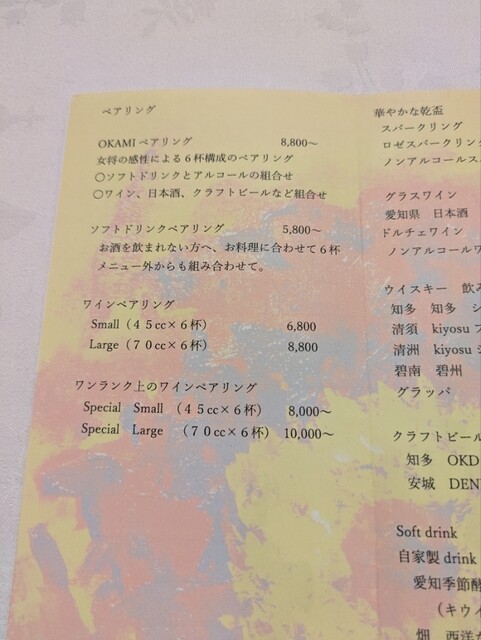 ペアリング
OKAMI ペアリング 8,800～
女将の感性による６杯構成のペアリング
〇ソフトドリンクとアルコールの組合せ
〇ワイン、日本酒、クラフトビールなど組合せ
ソフトドリンクペアリング 5,800～
お酒を飲まれない方へ、お料理に合わせて６杯
メニュー外からも組み合わせて。
ワインペアリング
Small（４５cc×６杯） 6,800
Large（７０cc×６杯） 8,800
ワンランク上のワインペアリング
Special Small （４５cc×６杯） 8,000～
Special Large （７０cc×６杯） 10,000～
華やかな乾盃
スパークリング
ロゼスパークリン
ノンアルコールス
グラスワイン
愛知県 日本酒
ドルチェワイン
ノンアルコールワ
ウイスキー 飲み
知多 知多 シ
清須 kiyosu
清洲 kiyosu
碧南 碧州
グラッパ
クラフトビール
知多 OKD
安城 DEN
Soft drink
自家製 drink
愛知季節酵
（キウイ
畑 西洋